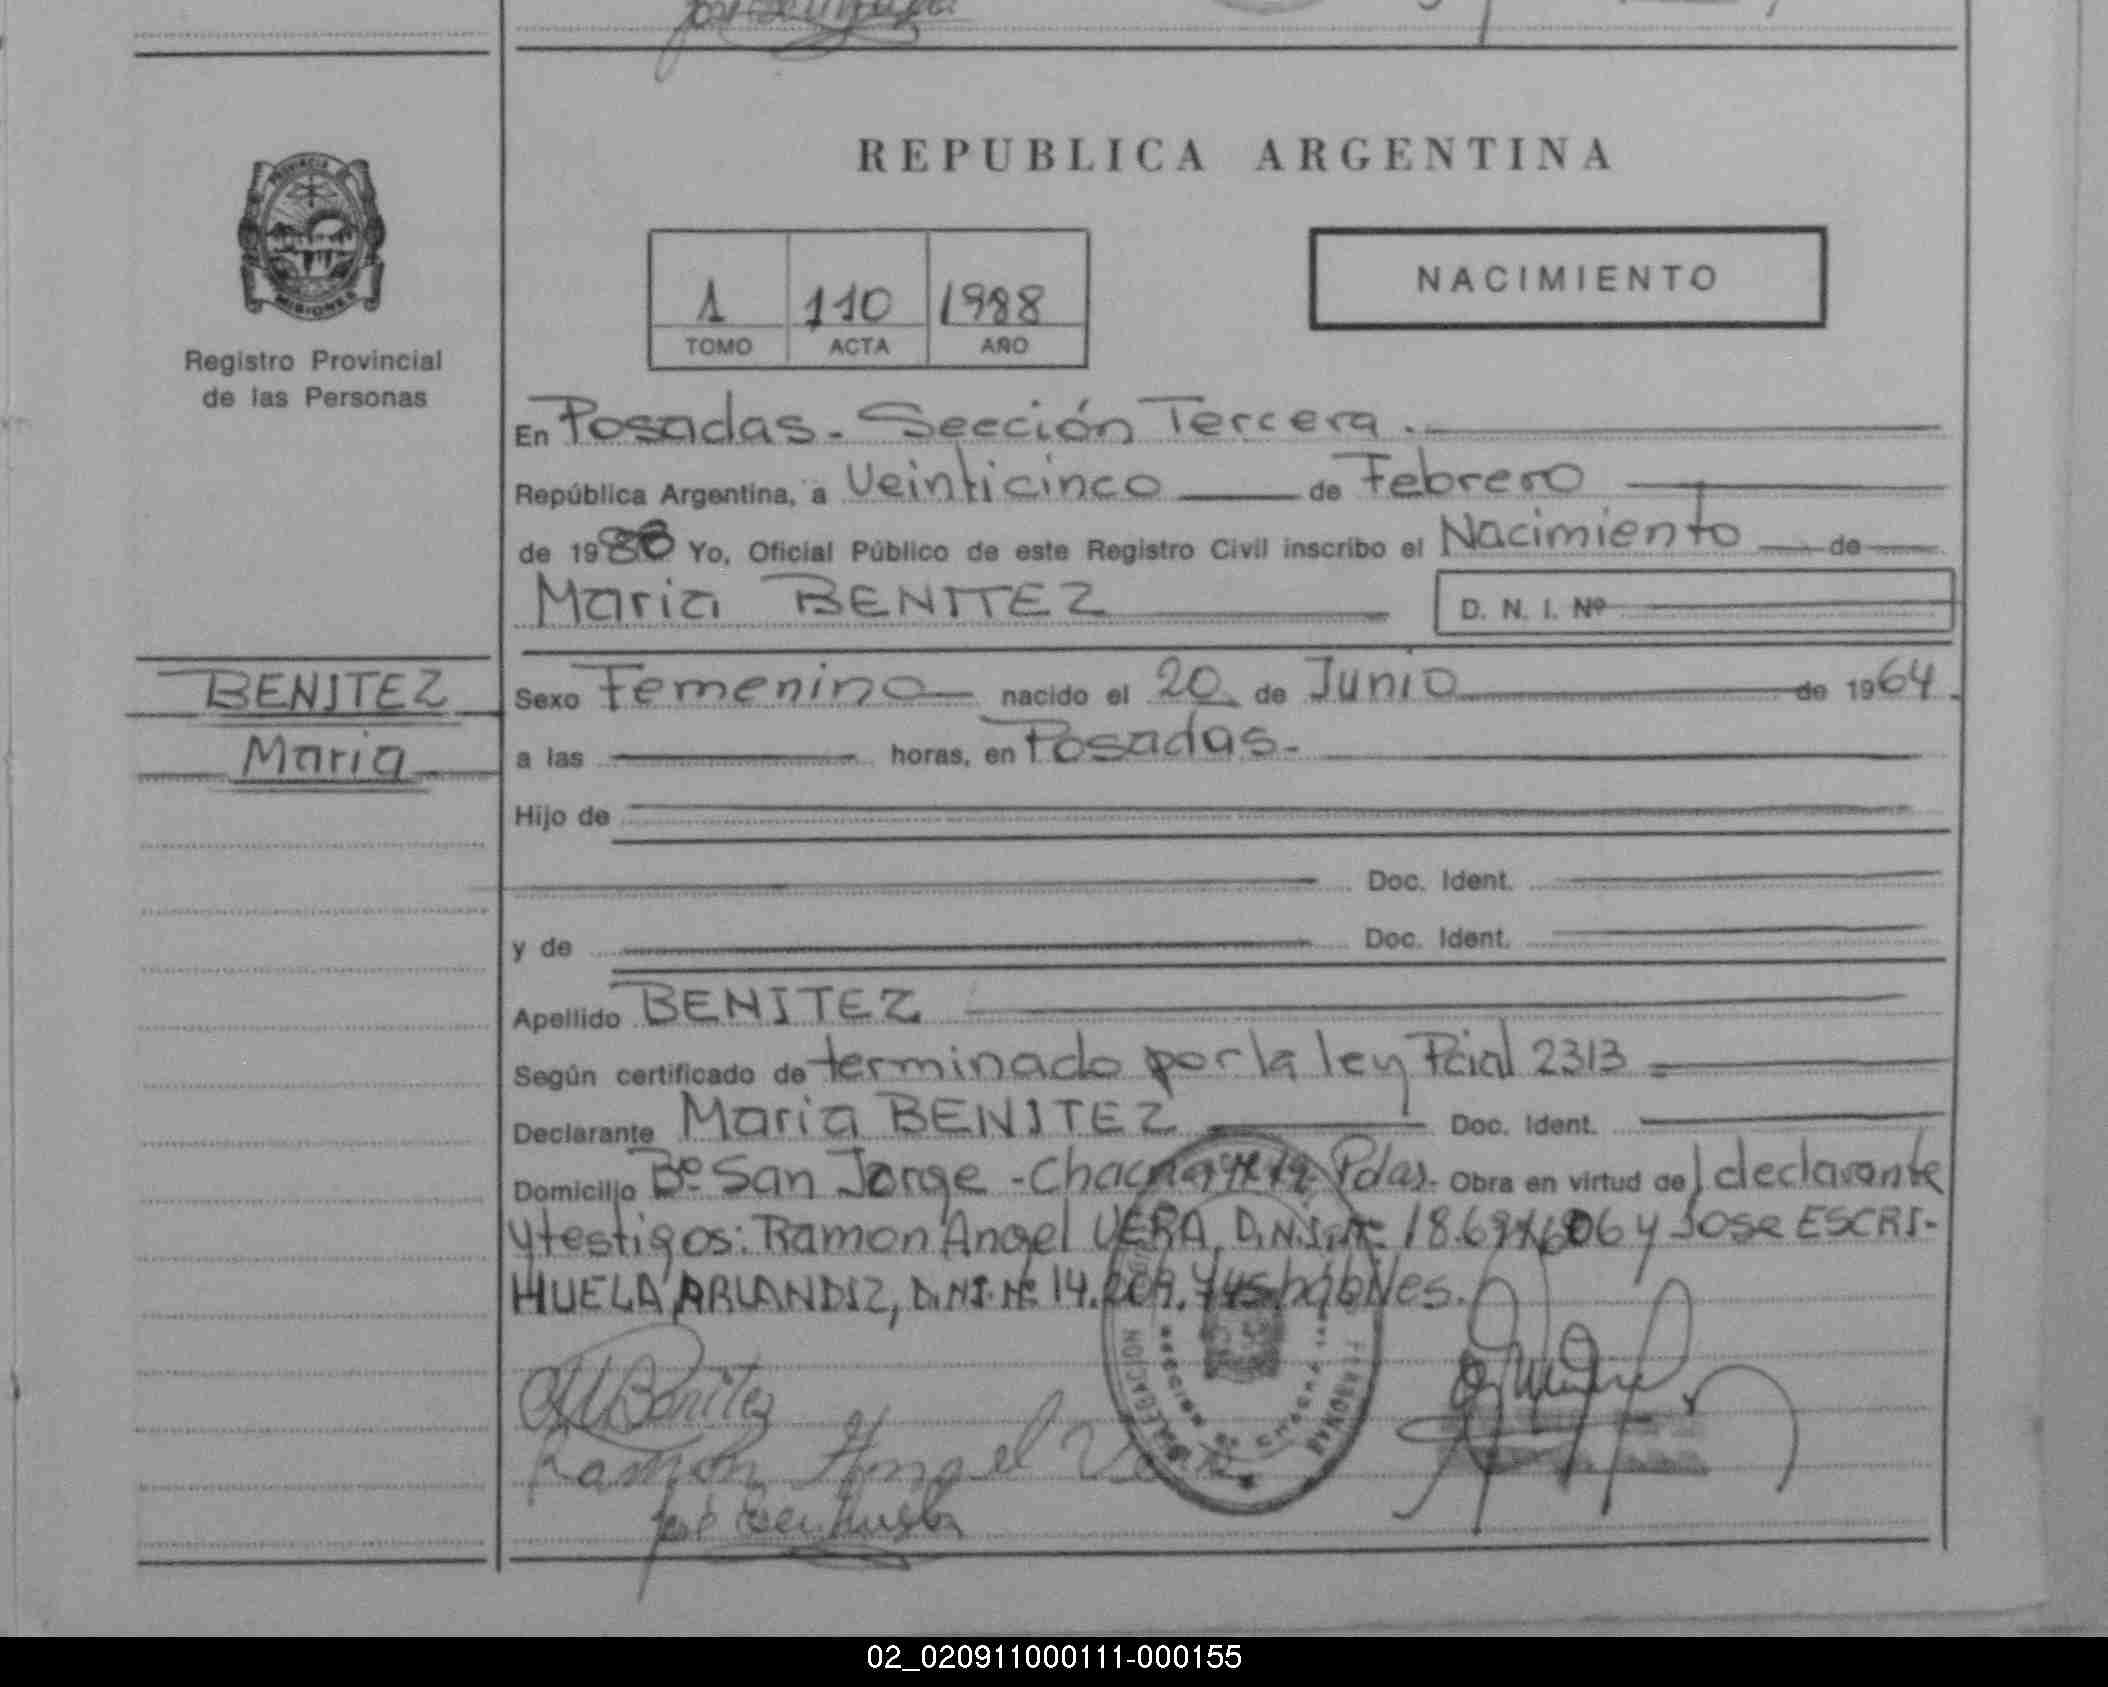 REPUBLICA ARGENTINA
1 110 1988
TOMO ACTA AÑO
NACIMIENTO
PROVINCIA DE
MISIONES
Registro Provincial
de las Personas
En Posadas. Sección Tercera.
República Argentina, a Veinticinco de Febrero
de 1988 Yo, Oficial Público de este Registro Civil inscribo el Nacimiento de
Maria BENITEZ D. N. I. Nº
BENITEZ
Maria
Sexo Femenino nacido el 20 de Junio de 1964.
a las horas, en Posadas.
Hijo de
Doc. Ident.
y de Doc. Ident.
Apellido BENITEZ
Según certificado de terminado por la ley Pcial 2313
Declarante Maria BENITEZ Doc. Ident.
Domicilio Bº San Jorge - Pdas. Obra en virtud del declarante
y testigos: Ramon Angel VERA, D.N.I. Nº y Jose ESCRI-
HUELA ARLANDIZ, D.N.I. Nº hábiles.
Benitez
Ramon Angel Vera
José Escrihuela
02_020911000111-000155